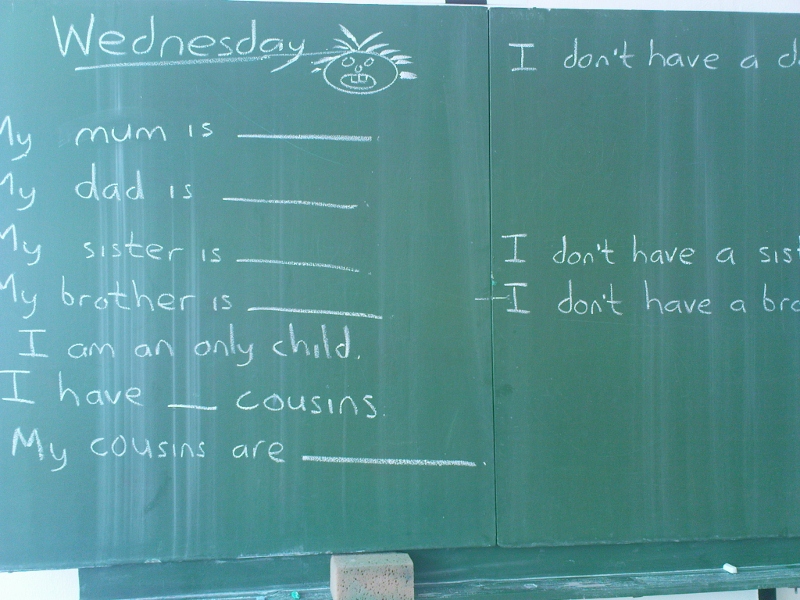 Wednesday
My mum is ______.
My dad is ______.
My sister is ______.
My brother is ______.
I am an only child.
I have __ cousins.
My cousins are ______.
I don't have a
I don't have a
I don't have a